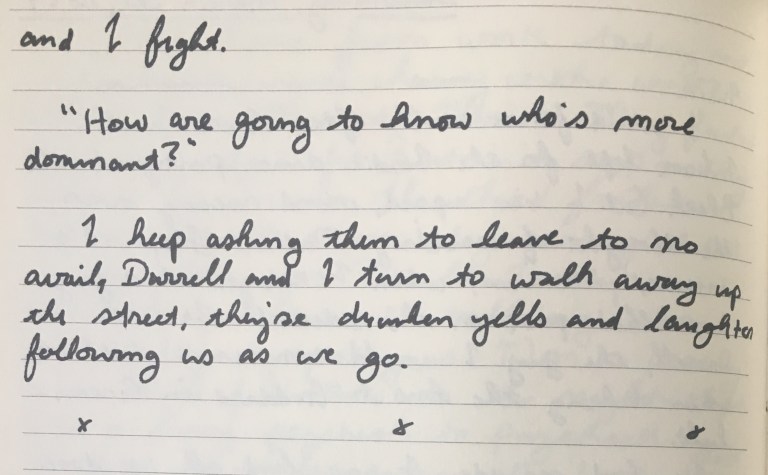 and I fight.
"How are going to know who's more
dominant?"
I keep asking them to leave to no
avail, Darrell and I turn to walk away up
the street, they're drunken yells and laughter
following us as we go.
x x x